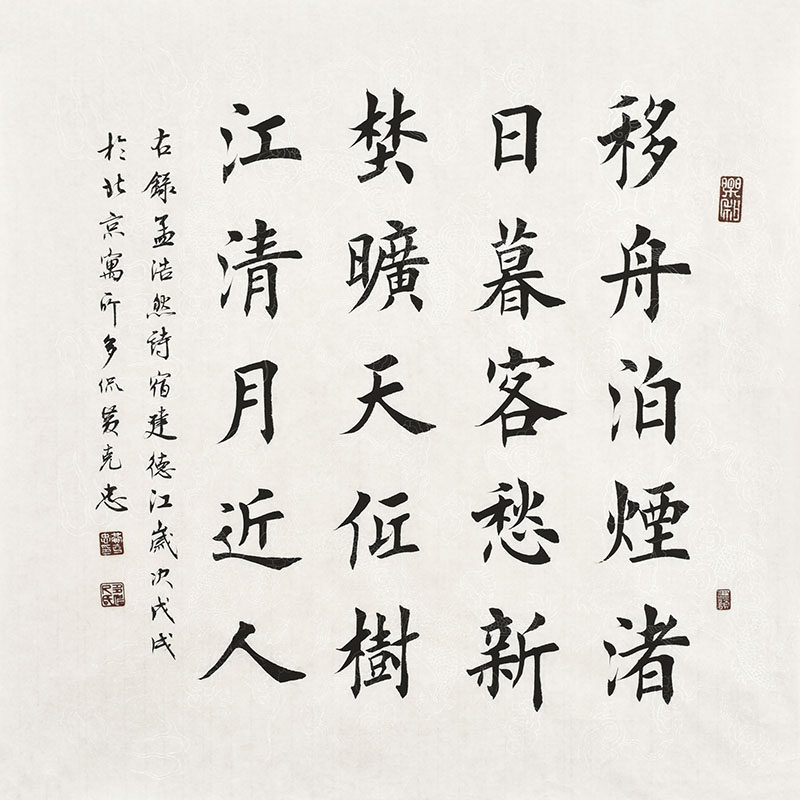 移舟泊煙渚
日暮客愁新
埜曠天低樹
江清月近人
右錄孟浩然詩宿建德江歲次戊戌
於北京寓所多侃黃克忠